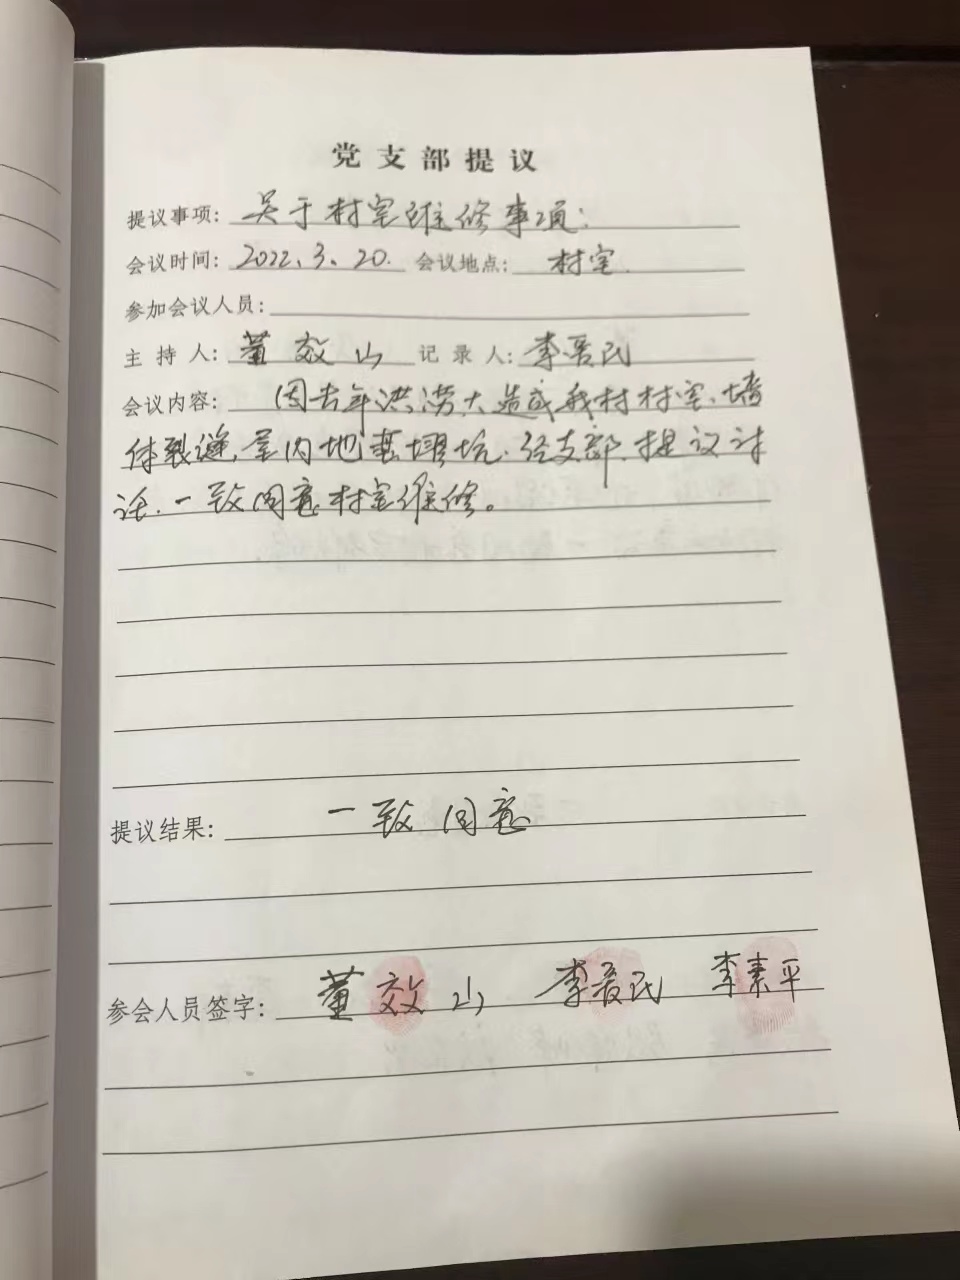 党支部提议
提议事项：关于村室维修事项：
会议时间：2022.3.20. 会议地点：村室
参加会议人员：
主持人：董效山 记录人：李爱民
会议内容：因去年洪涝大造成我村村室、墙
体裂缝，屋内地基塌坑.经支部.提议讨
论.一致同意村室维修。
提议结果：一致同意
参会人员签字：董效山 李爱民 李素平